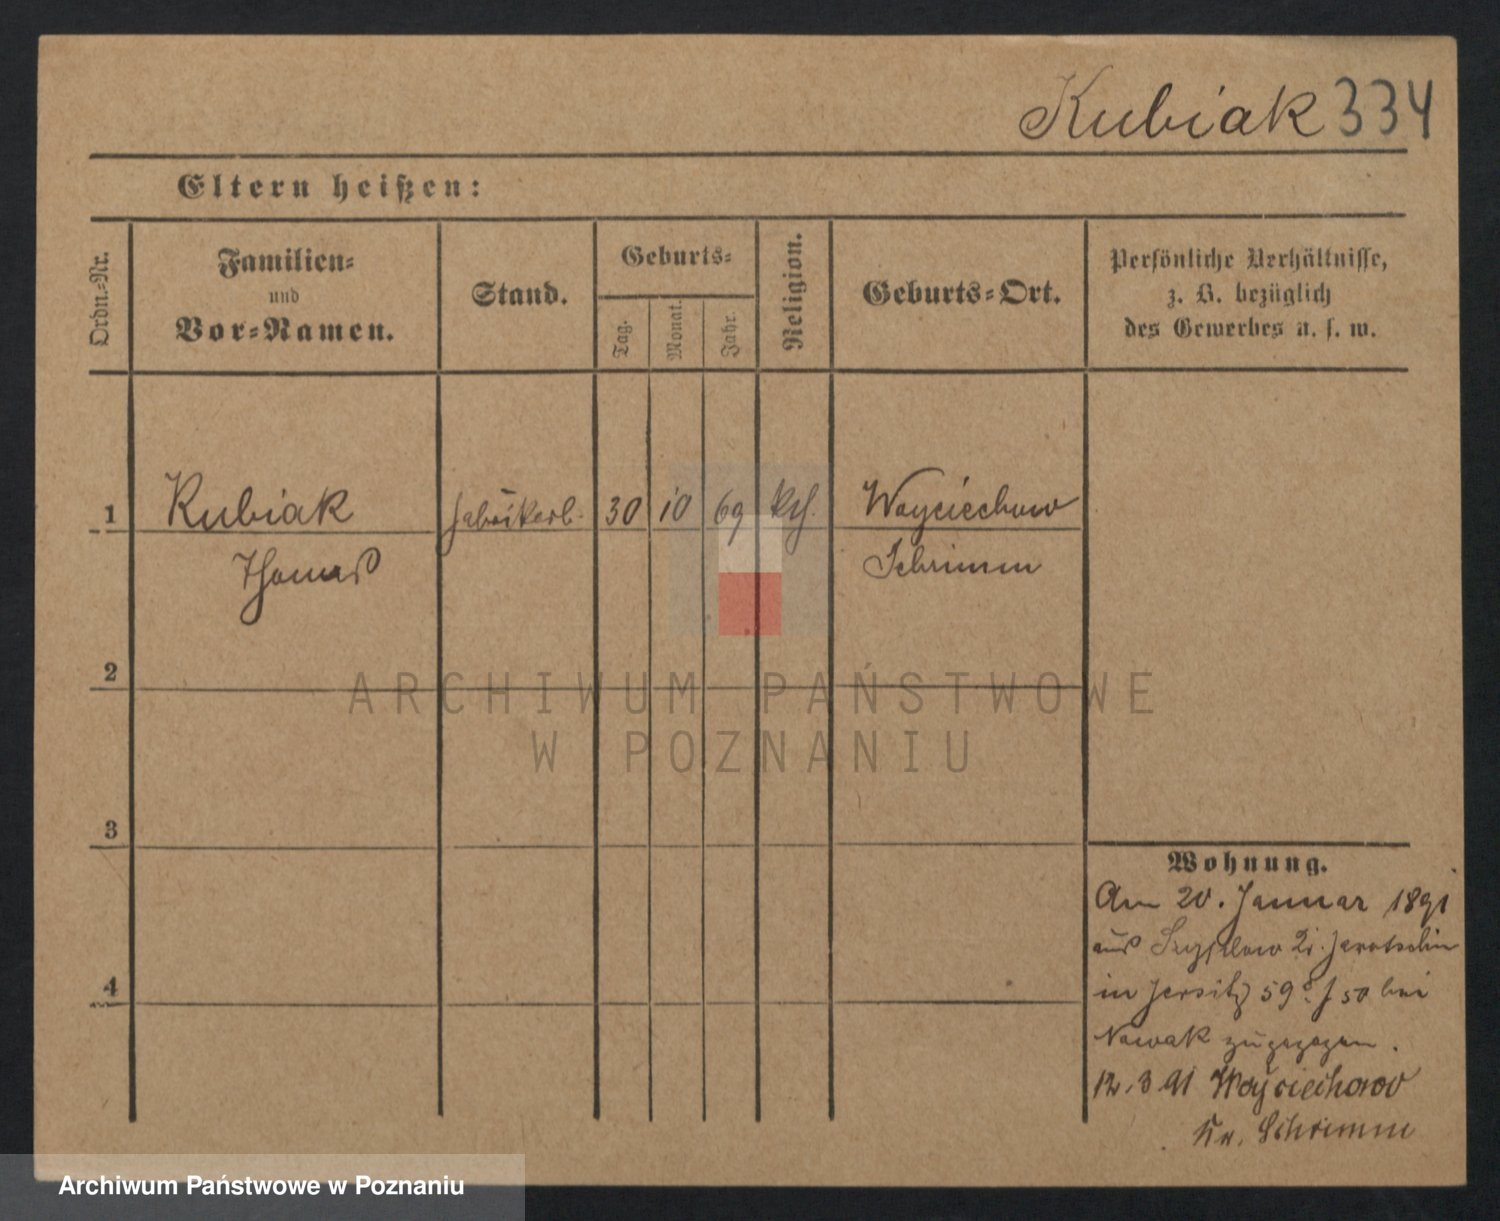 Kubiak 334
Eltern heißen:
Ordn.-Nr.
Familien-
und
Vor-Namen.
Stand.
Geburts-
Tag.
Monat.
Jahr.
Religion.
Geburts-Ort.
Persönliche Verhältnisse,
z. B. bezüglich
des Gewerbes u. s. w.
1 Kubiak fabrikarb. 30 10 69 kth. Woyciechowo
Thomas Schrimm
2
3
4
Wohnung.
Am 20. Januar 1891
aus Jarotschin
in Jersitz 59 bei
Nowak zugezogen.
12.3.91 Woyciechowo
Kr. Schrimm
ARCHIWUM PAŃSTWOWE
W POZNANIU
Archiwum Państwowe w Poznaniu